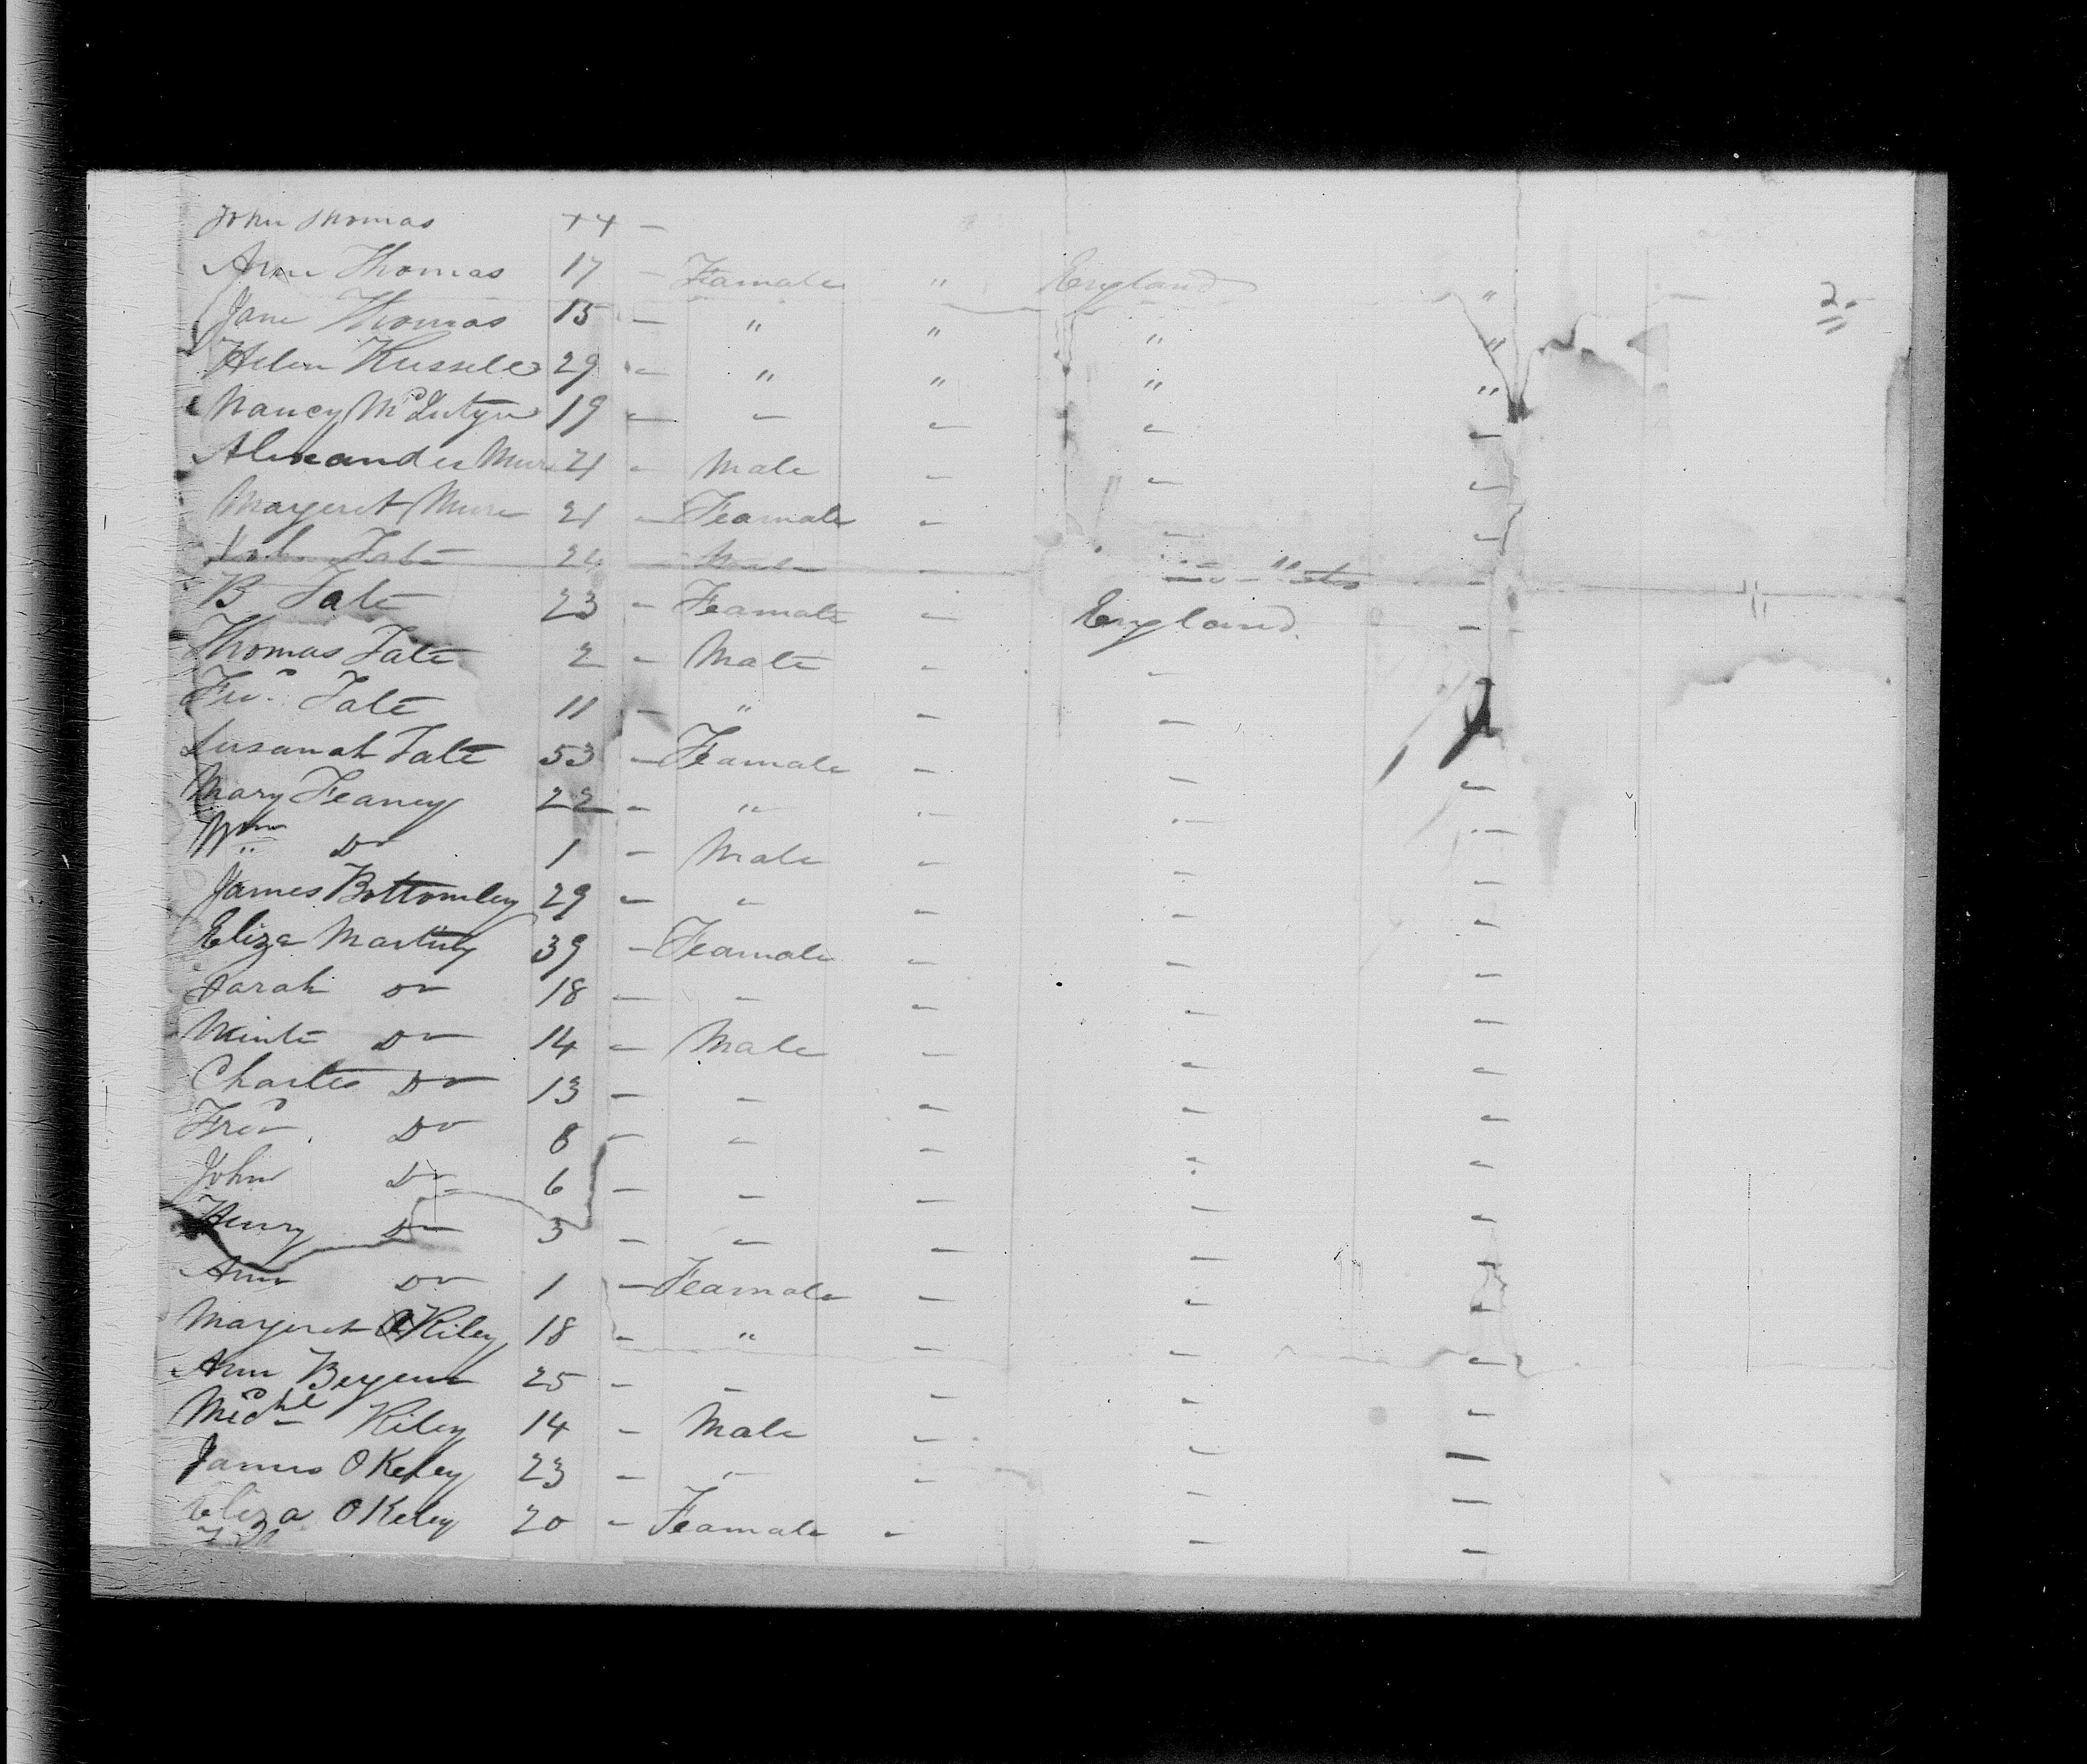 John Thomas 44 -
Ann Thomas 17 - Feamale " England "
Jane Thomas 15 - " " " "
Helen Russele 29 - " " " "
Nancy McIntyre 19 - - - - -
Alexander Mure 21 - Male - - -
Margeret Mure 21 - Feamale - - -
John Tate 24 - Male - -
B Tate 23 - Feamale - England -
Thomas Tate 2 - Male - -
Tate 11 - " - -
Susanah Tate 53 - Feamale - - -
Mary Feaney 22 - " - - -
Wm Do 1 - Male - - -
James Bottomley 29 - - - - -
Eliza 39 - Feamale - - -
Sarah Do 18 - - - - -
Do 14 - Male - - -
Charles Do 13 - - - - -
Fred Do 8 - - - - -
John Do 6 - - - - -
Henry Do 3 - - - - -
Ann Do 1 - Feamale - - -
Margeret O Kiley 18 - " - - -
Ann 25 - - - - -
Michl Kiley 14 - Male - - -
James O Keley 23 - - - - -
Eliza O Keley 20 - Feamale - - -